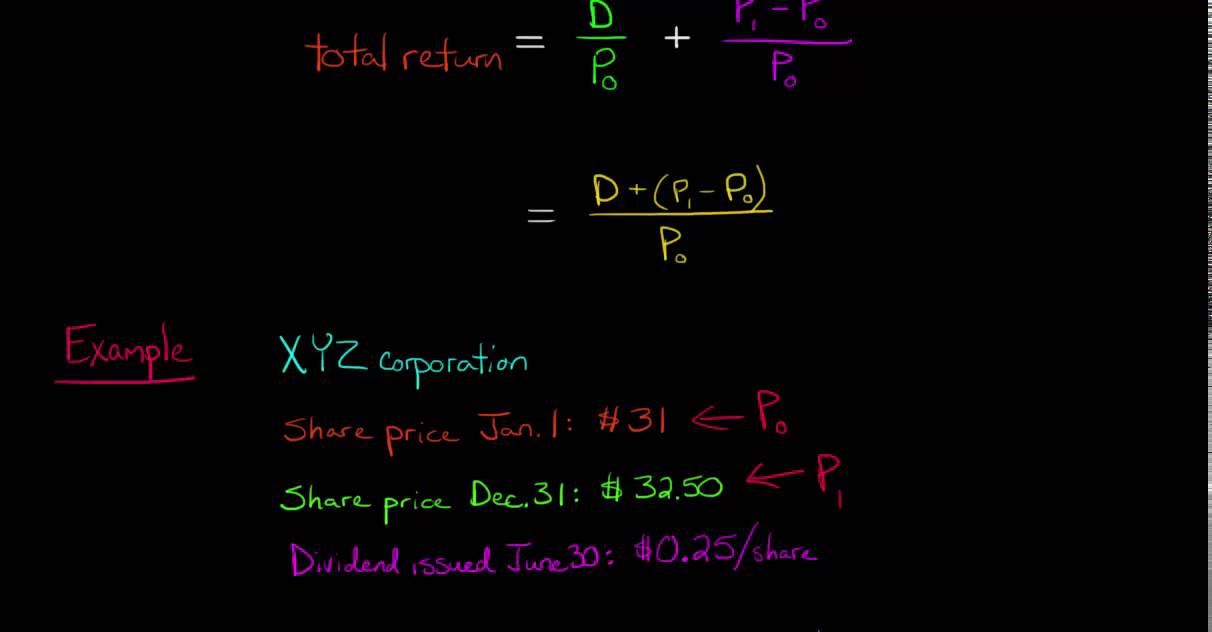 total return = D/P₀ + P₁ - P₀/P₀
= D + (P₁ - P₀)/P₀
Example
XYZ corporation
Share price Jan. 1: $31 ← P₀
Share price Dec. 31: $32.50 ← P₁
Dividend issued June 30: $0.25/share